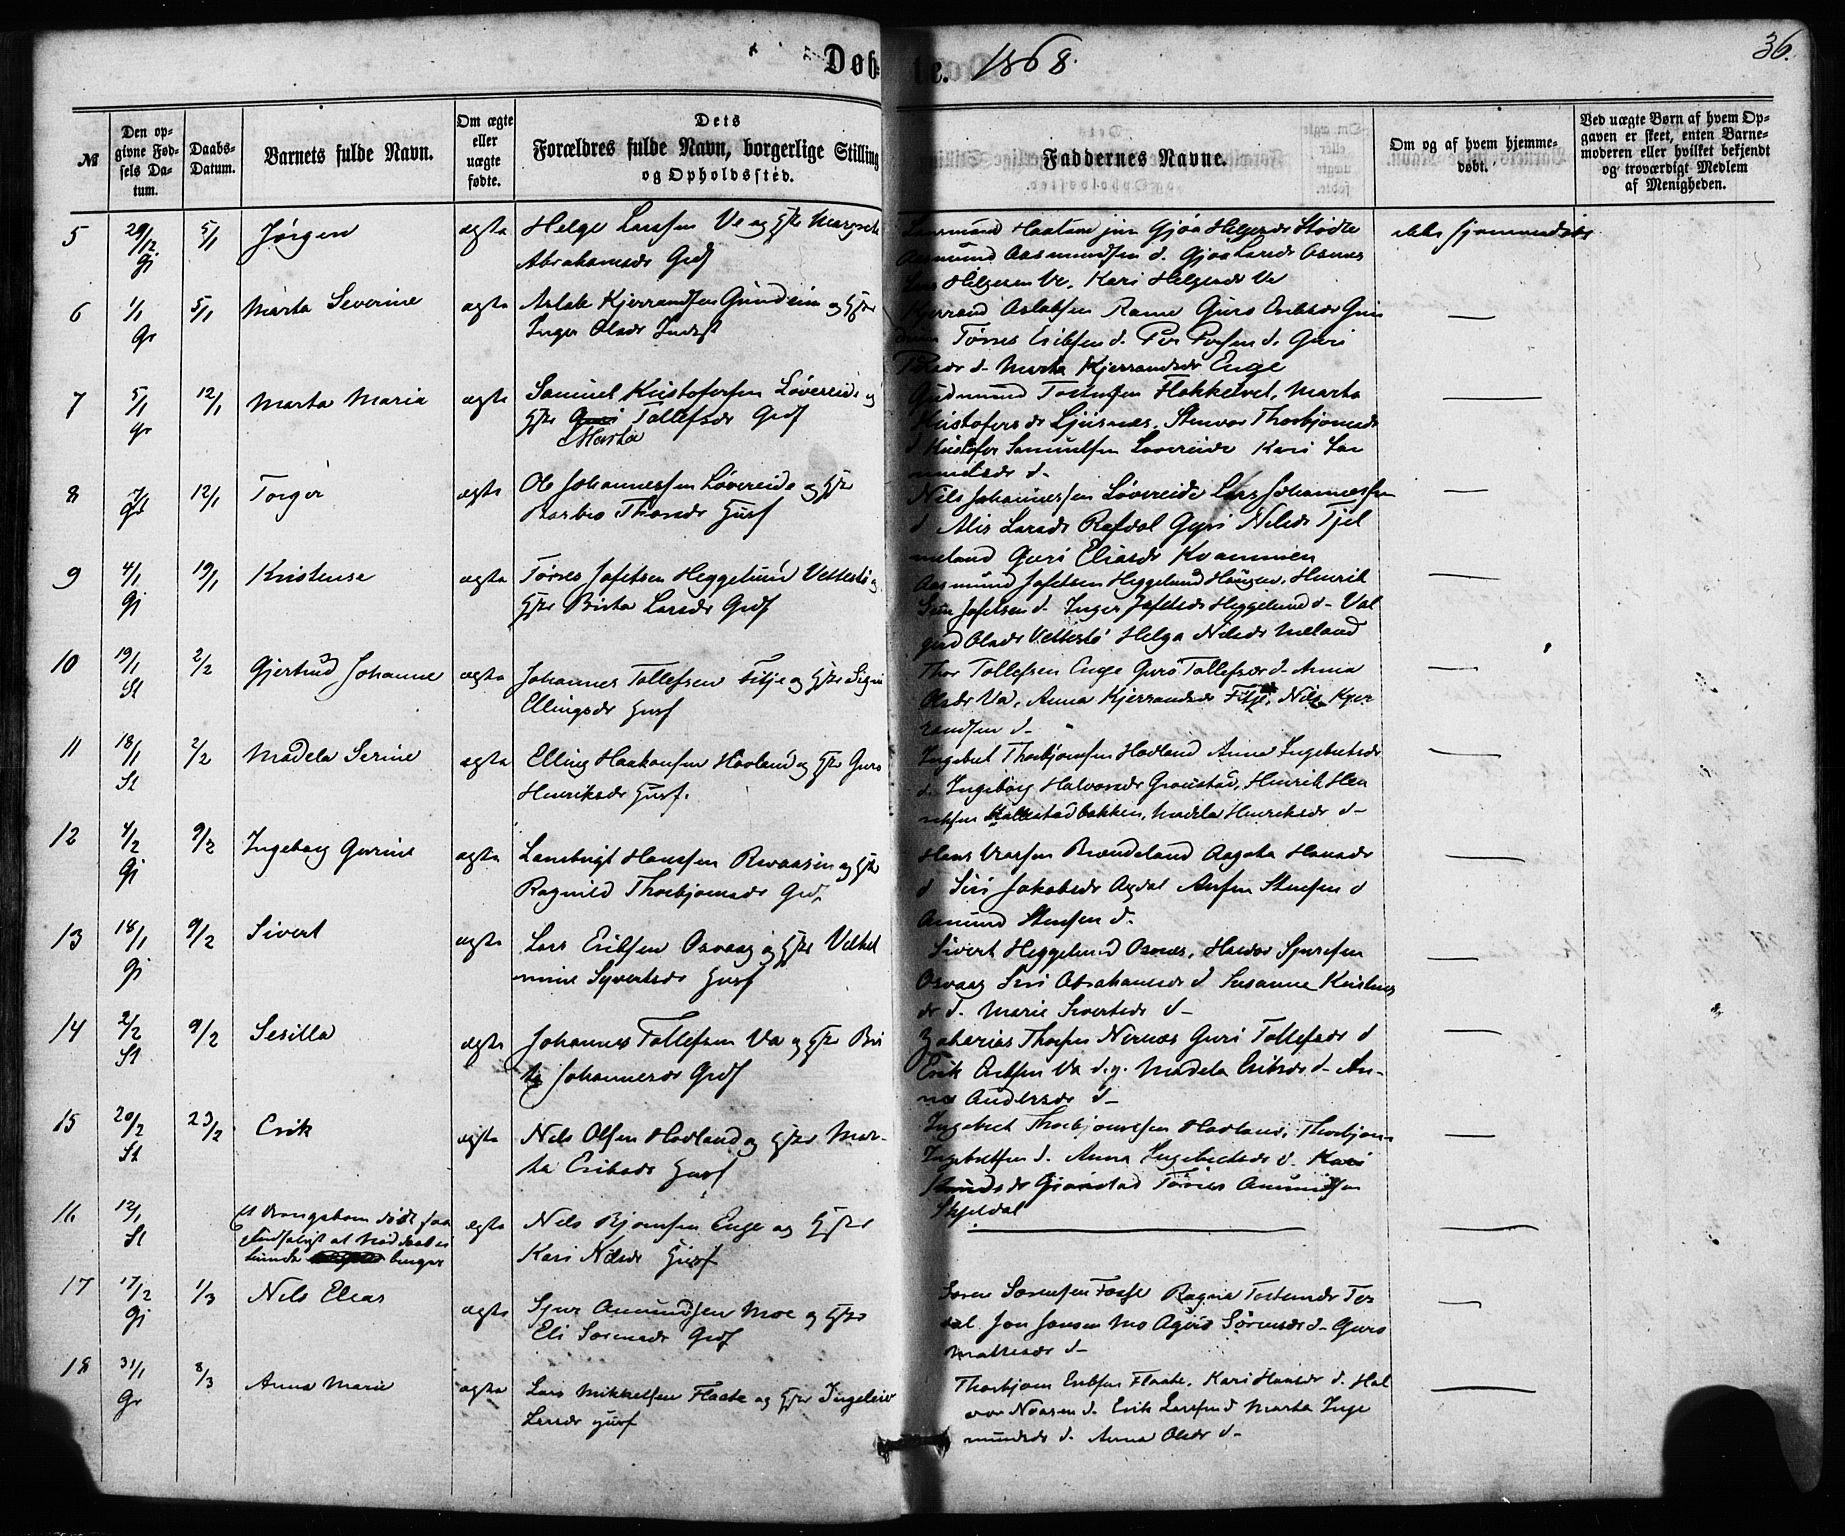 Døb-
te. 1868.
36.
№
Den op-
givne Fød-
sels Da-
tum.
Daabs-
Datum.
Barnets fulde Navn.
Om ægte
eller
uægte
fødte.
Dets
Forældres fulde Navn, borgerlige Stilling
og Opholdssted.
Faddernes Navne.
Om og af hvem hjemme-
døbt.
Ved uægte Børn af hvem Op-
gaven er skeet, enten Barne-
moderen eller hvilket bekjendt
og troværdigt Medlem
af Menigheden.
5 29/12 Gj 5/1 Jørgen ægte Helge Larssen Ve og Hstr Margrete
Abrahamsdr Grdf
Haatun jun Gjøa Helgesdr Stødle
Aasmund Aasmundsen d. Gjøa Larsdr Osnes
Lars Helgesen Ve, Kari Helgesdr Ve
ikke hjemmedøbt
6 1/1 Gr 5/1 Marta Severine ægte Aslak Kjerrandsen Grindeim og Hstr
Inger Olsdr Inderst
Kjerrand Aslaksen Rame Guro Eriksdr Grin
deim Tørres Eriksen d. Per Persen d. Guri
d. Marta Kjerrandsdr Enge
7 5/1 Gr 12/1 Marta Maria ægte Samuel Kristofersen Løvereide og
Hstr Guri Tollefsdr Grdf
Marta
Gudmund Tostensen Flokketvet, Marta
Kristofersdr Ljusnæs, Stenvor Thorbjørnsdr
d Kristofer Samuelsen Løvereide Kari Sa
muelsdr d.
8 7/1 Gr 12/1 Torger ægte Ole Johannessen Løvereide og Hstr
Barbro Thorsdr Husf
Nils Johannessen Løvereide Lars Johannessen
d Alis Larsdr Rafdal Guri Nilsdr Tjel
meland Guri Eliasdr Kvammen
9 4/1 Gj 19/1 Kristense ægte Tørres Jofetsen Heggelund Vettestø og
Hstr Birta Larsdr Grdf
Aasmund Jofetsen Heggelund Haugen, Henrik
Jofetsen d. Inger Jofetsdr Heggelund d. Val
gerd Olsdr Vettestø Helga Nilsdr Meland
10 19/1 St 2/2 Gjertrud Johanne ægte Johannes Tollefsen Fitje og Hstr Signi
Ellingsdr Husf
Thor Tollefsen Enge Guro Tollefsdr d. Anna
Olsdr Va, Anna Kjerrandsdr Fitje, Nils Kjer
randsen d.
11 18/1 St 2/2 Madela Serine ægte Elling Haakonsen Hovland og Hstr Guro
Henriksdr Husf.
Ingebret Thorbjørnsen Hovland Anna Ingebretsdr
d. Ingeborg Halvorsdr Grønstad, Henrik Hen
riksen Kallestadbakken, Madela Henriksdr d.
12 4/2 Gj 9/2 Ingeborg Gurine ægte Lambrigt Hanssen Rvaasen og Hstr
Ragnild Thorbjørnsdr Grdf
Hans Brændeland Aagata Hansdr
d Siri Jakobsdr Agdal Anfin Stensen d
Amund Stensen d.
13 18/1 Gj 9/2 Sivert ægte Lars Eriksen Osvaag og Hstr Velhel
mine Syvertsdr Husf
Sivert Heggelund Osnæs, Haldor Sjursen
Osvaag Siri Abrahamsdr d Susanne Kristens
dr d. Marie Sivertsdr d.
14 2/2 St 9/2 Sesilla ægte Johannes Tollefsen Va og Hstr Bri
ta Johannesdr Grdf
Zakarias Thorsen Nernæs Guri Tollefsdr d
Erik Eriksen Va d.y. Madela Eriksdr d. An-
na Andersdr d.
15 20/2 St 23/2 Erik ægte Nils Olsen Hovland og Hstr Mar-
ta Eriksdr Husf
Ingebret Thorbjørnsen Hovland, Thorbjørn
Ingebretsen d. Anna Ingebretsdr d. Kari
Grønstad Tørres Amundsen
Skjeldal
16 12/1 St Et Drengebarn døbt
at Nøddaab ei
kunde bruges
ægte Nils Bjørnsen Enge og Hstr
Kari Nilsdr Husf
17 17/2 Gj 1/3 Nils Elias ægte Sjur Amundsen Moe og Hstr
Eli Sørensdr Grdf
Søren Sørensen Fosse Ragna Tostensdr Tes
dal Jon Jonsen Mo Sørensdr d. Guro
d.
18 31/1 Gr 8/3 Anna Marie ægte Lars Mikkelsen Flaate og Hstr Ingeleiv
Larsdr Husf
Thorbjørn Eriksen Flaate, Kari Hansdr d. Hal
vor d. Erik Larssen d Marta Inge
mundsdr d. Anna Olsdr d.